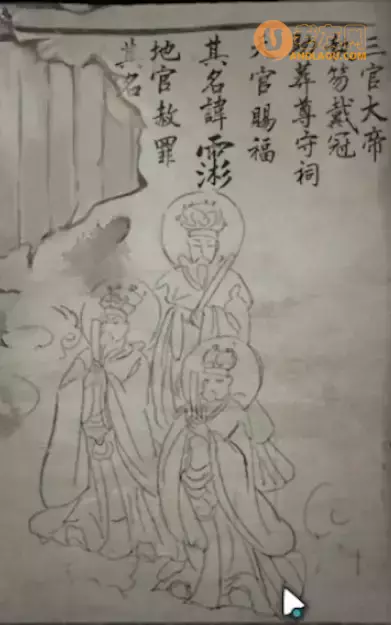 三官大帝
執笏戴冠
陪葬尊守祠
天官賜福
其名諱霛
地官赦罪
其名